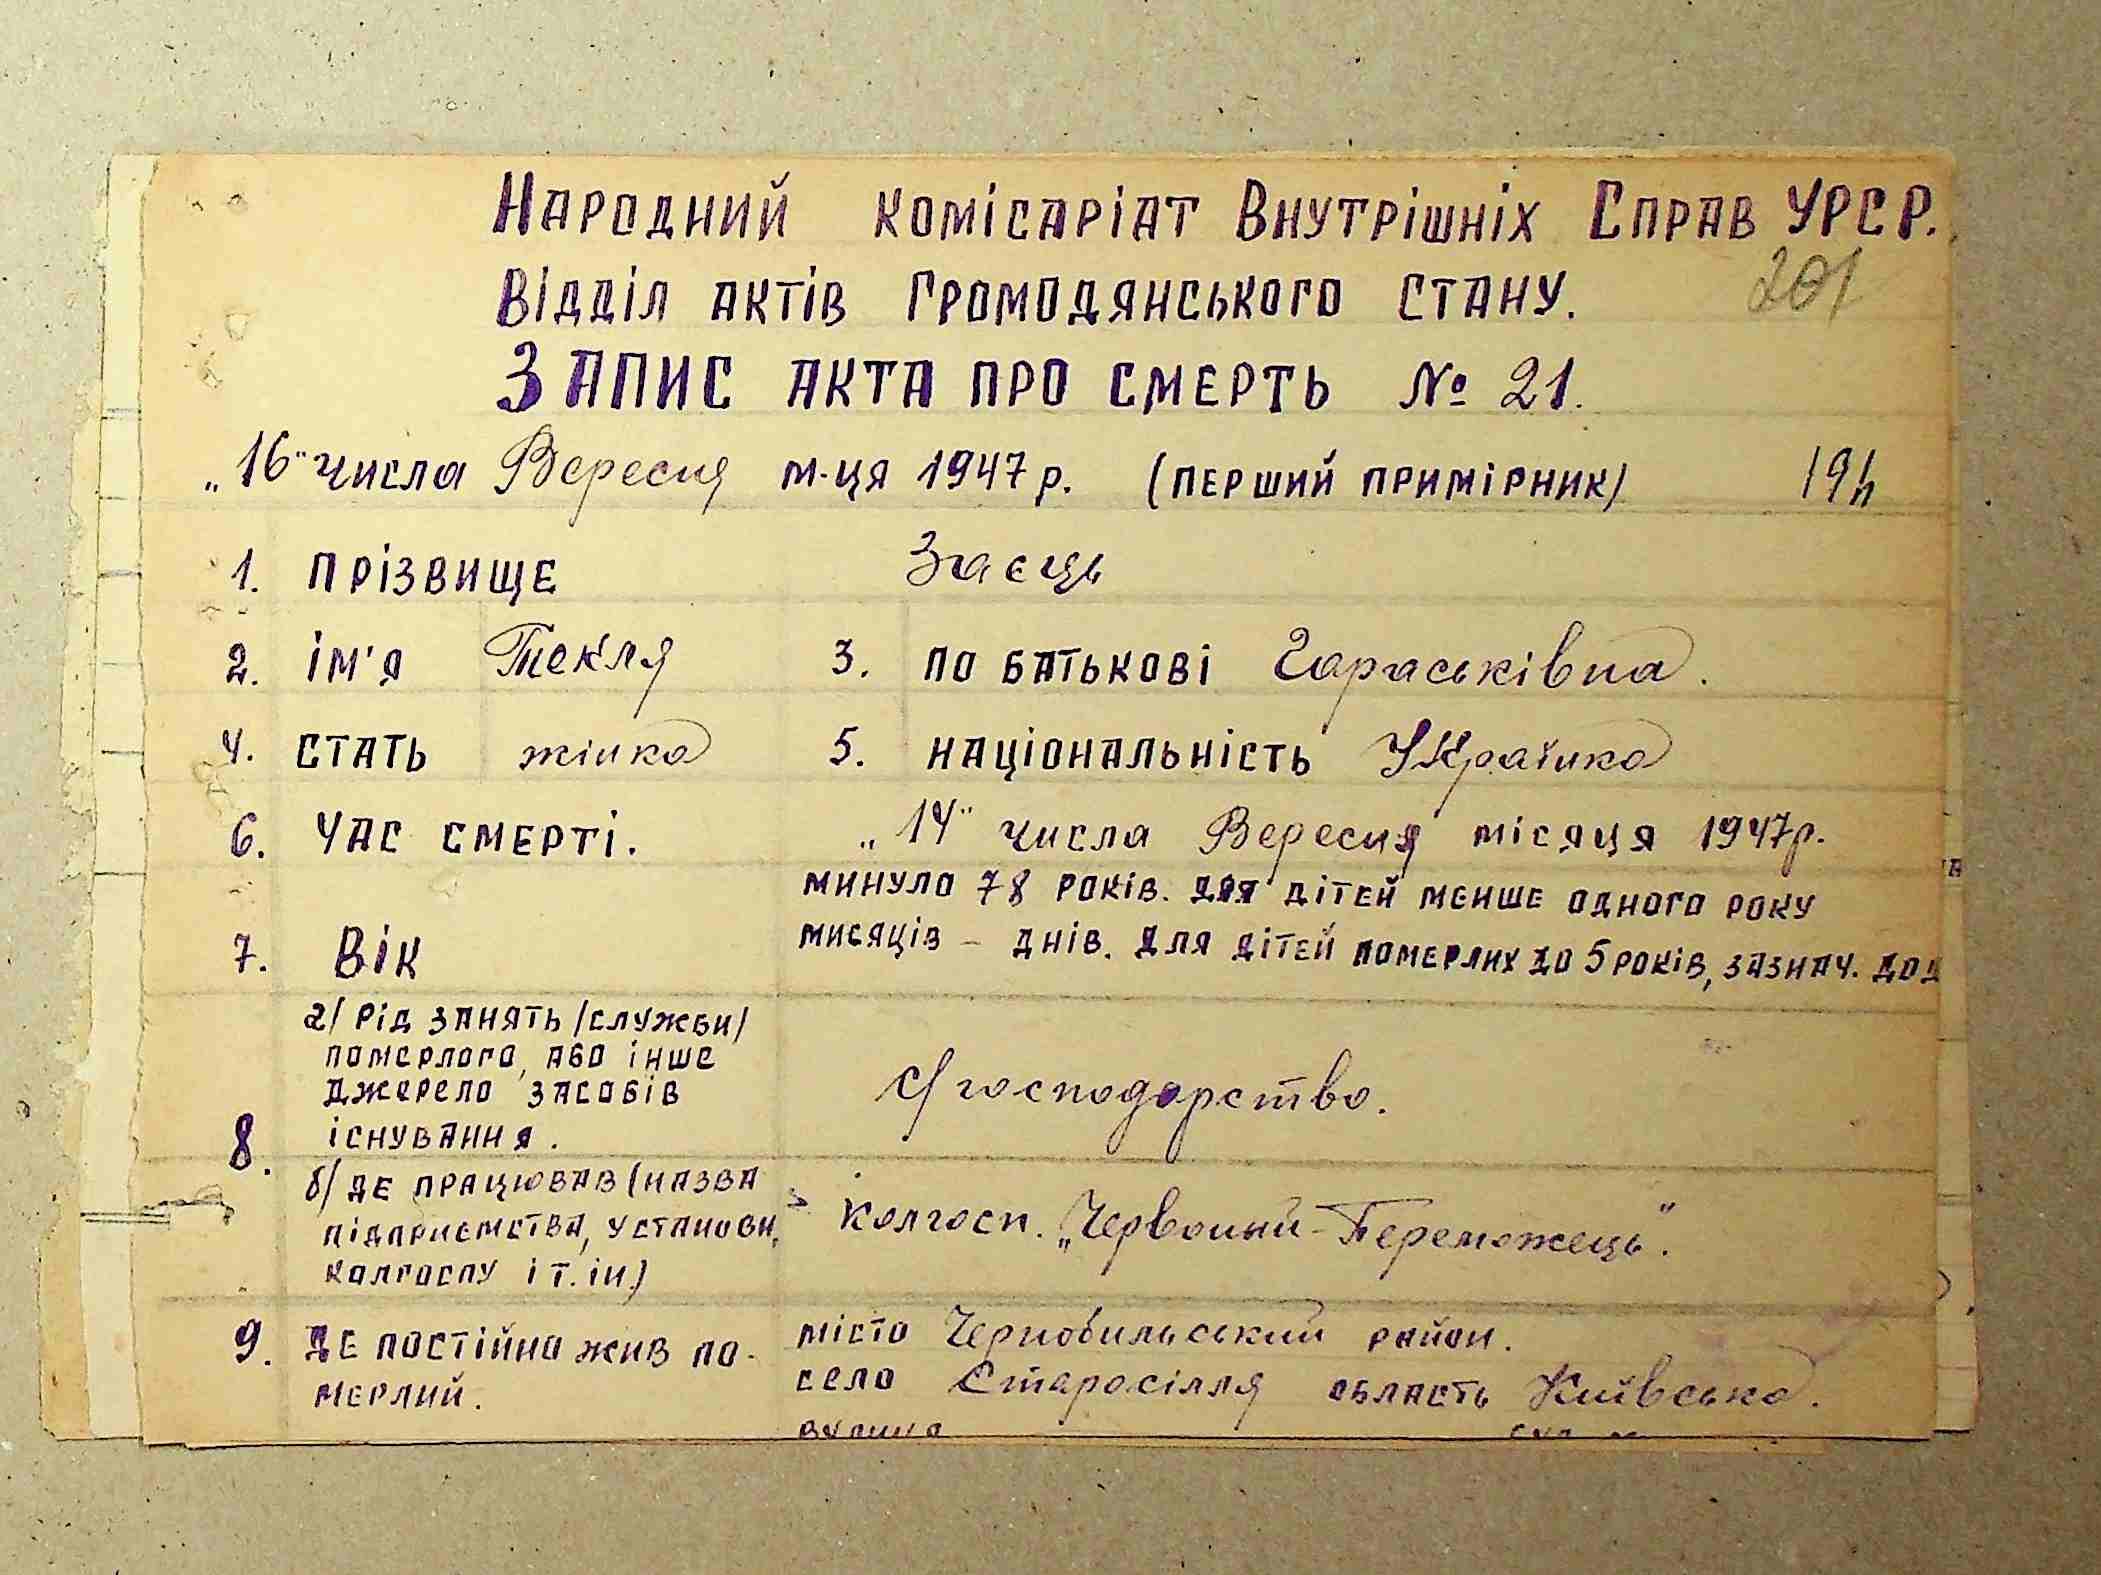 Народний комісаріат Внутрішніх Справ УРСР.
201
Відділ актів громодянського стану.
Запис акта про смерть № 21.
„16" числа Вересня м-ця 1947 р. (перший примірник)
1. прізвище Заєць
2. ім'я Текля 3. по батькові Гараськівна.
4. стать жінка 5. національність Українка
6. Час смерті. „14" числа Вересня місяця 1947р.
минуло 78 років. для дітей менше одного року
7. Вік мисяців – днів. для дітей померлих до 5 років, зазнач. дод
а/ рід занять /служби/
померлого, або інше
джерело засобів
існування.
с/господарство.
8.
б/ де працював (назва
підприємства, установи,
колгоспу і т. ін.)
Колгосп. „Червоний-Переможець".
9. Де постійно жив по-
мерлий.
місто Чернобильський район.
село Старосілля область Київська.
вулиця